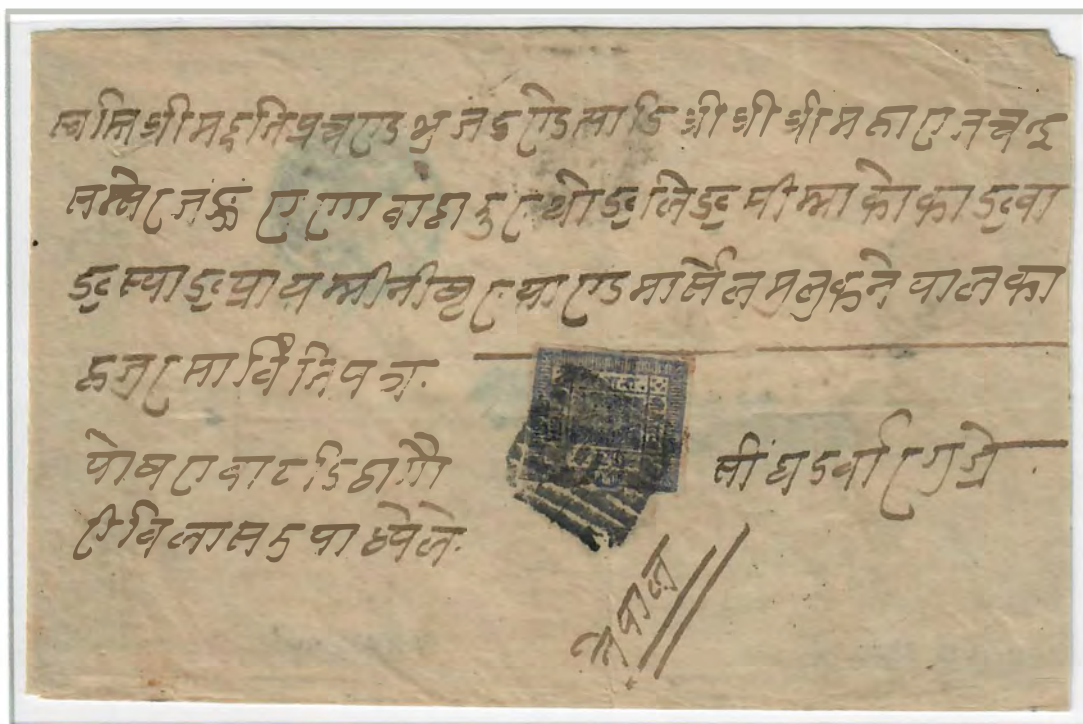 स्वस्ति श्रीमद्दतिप्रचण्ड भुजदण्डेत्यादि श्री श्री श्री महाराज चन्द्र
सम्सेर जङ्ग राणा वाहादुर थोङ् लिङ् पीम्मा को का ङ् वा
ङ् स्याङ् प्रायम्मीनीष्टर याण्ड मार्सल मुलुक नेपालका
हजुरमा विंतिपत्र
पोषरावाट डिठा गौ
रीविलास उपाध्येले
सींघदर्वार